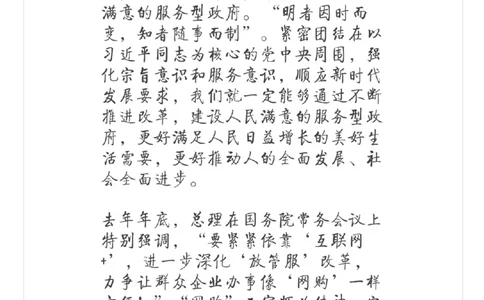 满意的服务型政府。 “明者因时而
变，知者随事而制”。紧密团结在以
习近平同志为核心的党中央周围，强
化宗旨意识和服务意识，顺应新时代
发展要求，我们就一定能够通过不断
推进改革，建设人民满意的服务型政
府，更好满足人民日益增长的美好生
活需要，更好推动人的全面发展、社
会全面进步。
去年年底，总理在国务院常务会议上
特别强调，“要紧紧依靠‘互联网
+’，进一步深化‘放管服’改革，
力争让群众企业办事像‘网购’一样